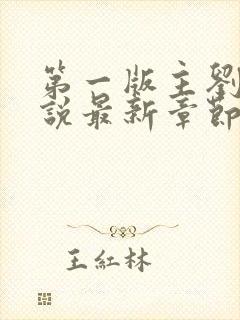 第一版主劉
說最新章節
王紅林